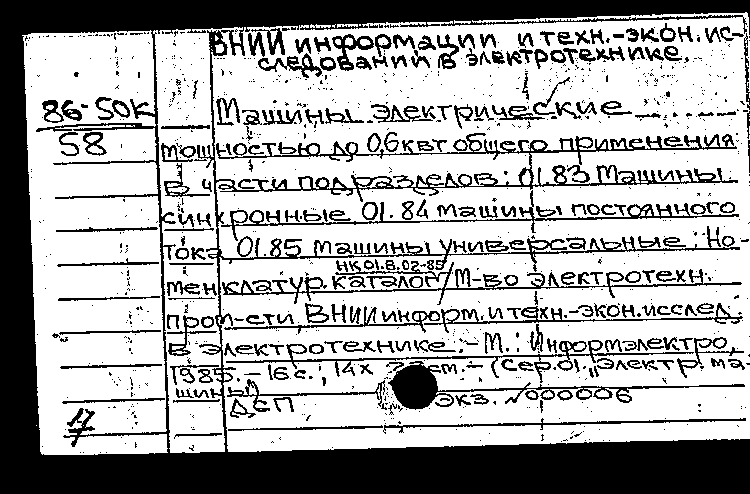 ВНИИ информации и техн.-экон. ис-
следований в электротехнике.
86-50К
58
Машины электрические
мощностью до 0,6квт общего применения
в части подразделов: 01.83 Машины
синхронные, 01.84 Машины постоянного
тока, 01.85 Машины универсальные: Но-
НК 01.8.02-85
менклатур. каталог / М-во электротехн.
пром-сти, ВНИИ информ. и техн.-экон. исслед.
в электротехнике. - М.: Информэлектро,
1985. - 16 с.; 14х см. - (Сер. 01. "Электр. ма-
шины")
ДСП экз. №000006
17